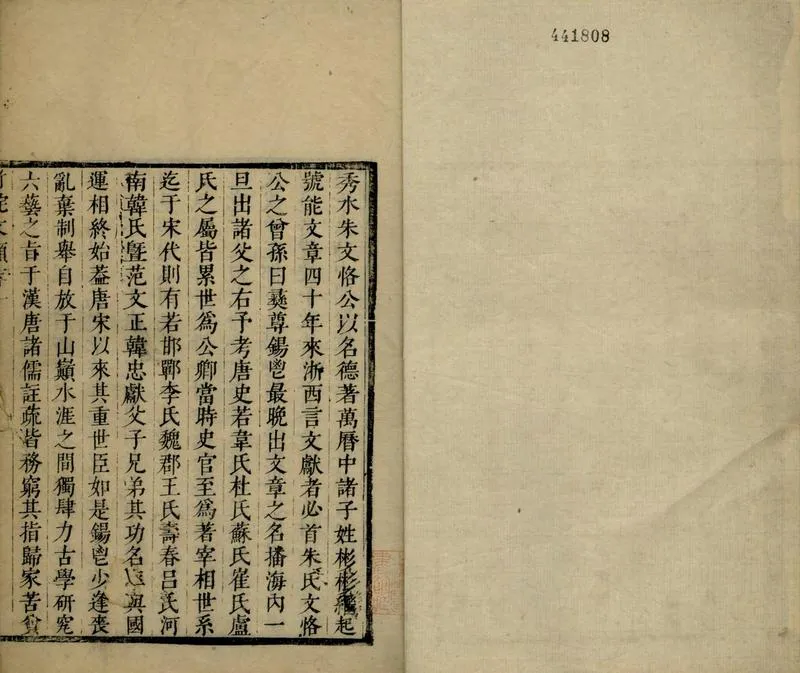 441808
秀水朱文恪公以名德著萬曆中諸子姓彬彬繼起
號能文章四十年來浙西言文獻者必首朱氏文恪
公之曾孫曰彞尊錫鬯最晚出文章之名播海內一
旦出諸父之右予考唐史若韋氏杜氏蘇氏崔氏盧
氏之屬皆累世爲公卿當時史官至爲著宰相世系
迄于宋代則有若邯鄲李氏魏郡王氏壽春呂氏河
南韓氏暨范文正韓忠獻父子兄弟其功名與國
運相終始葢唐宋以來其重世臣如是錫鬯少逢喪
亂棄制舉自放于山巔水涯之間獨肆力古學研究
六藝之旨于漢唐諸儒註疏皆務窮其指歸家苦貧